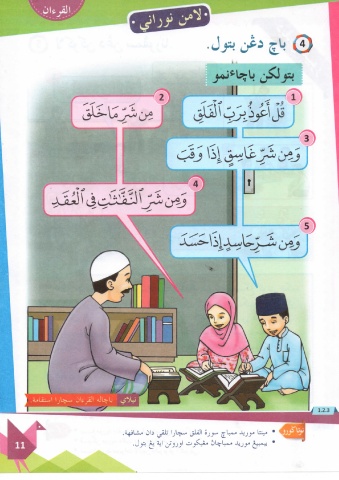 القرءان
لامن نوراني
4 باچ دڠن بتول.
بتولكن باچاءنمو
1
قُلْ أَعُوذُ بِرَبِّ الْفَلَقِ
2
مِن شَرِّ مَا خَلَقَ
3
وَمِن شَرِّ غَاسِقٍ إِذَا وَقَبَ
4
وَمِن شَرِّ النَّفَّٰثَٰتِ فِي الْعُقَدِ
5
وَمِن شَرِّ حَاسِدٍ إِذَا حَسَدَ
نيلاي باچاله القرءان سچارا استقامة
1.2.3
• مينتا موريد ممباچ سورة الفلق سچارا تلقي دان مشافهة.
• بيمبيڠ موريد ممباچ دان مڠيكوت اوروتن اية يڠ بتول.
11